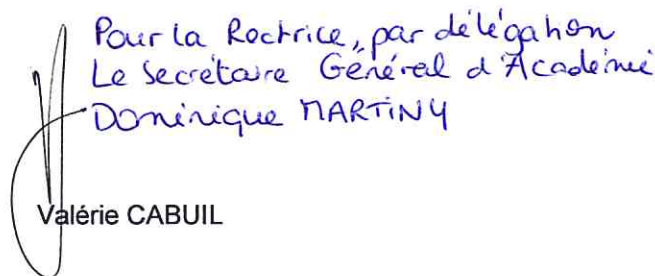 Pour la Rectrice, par délégation
Le Secrétaire Général d'Académie
Dominique MARTINY
Valérie CABUIL